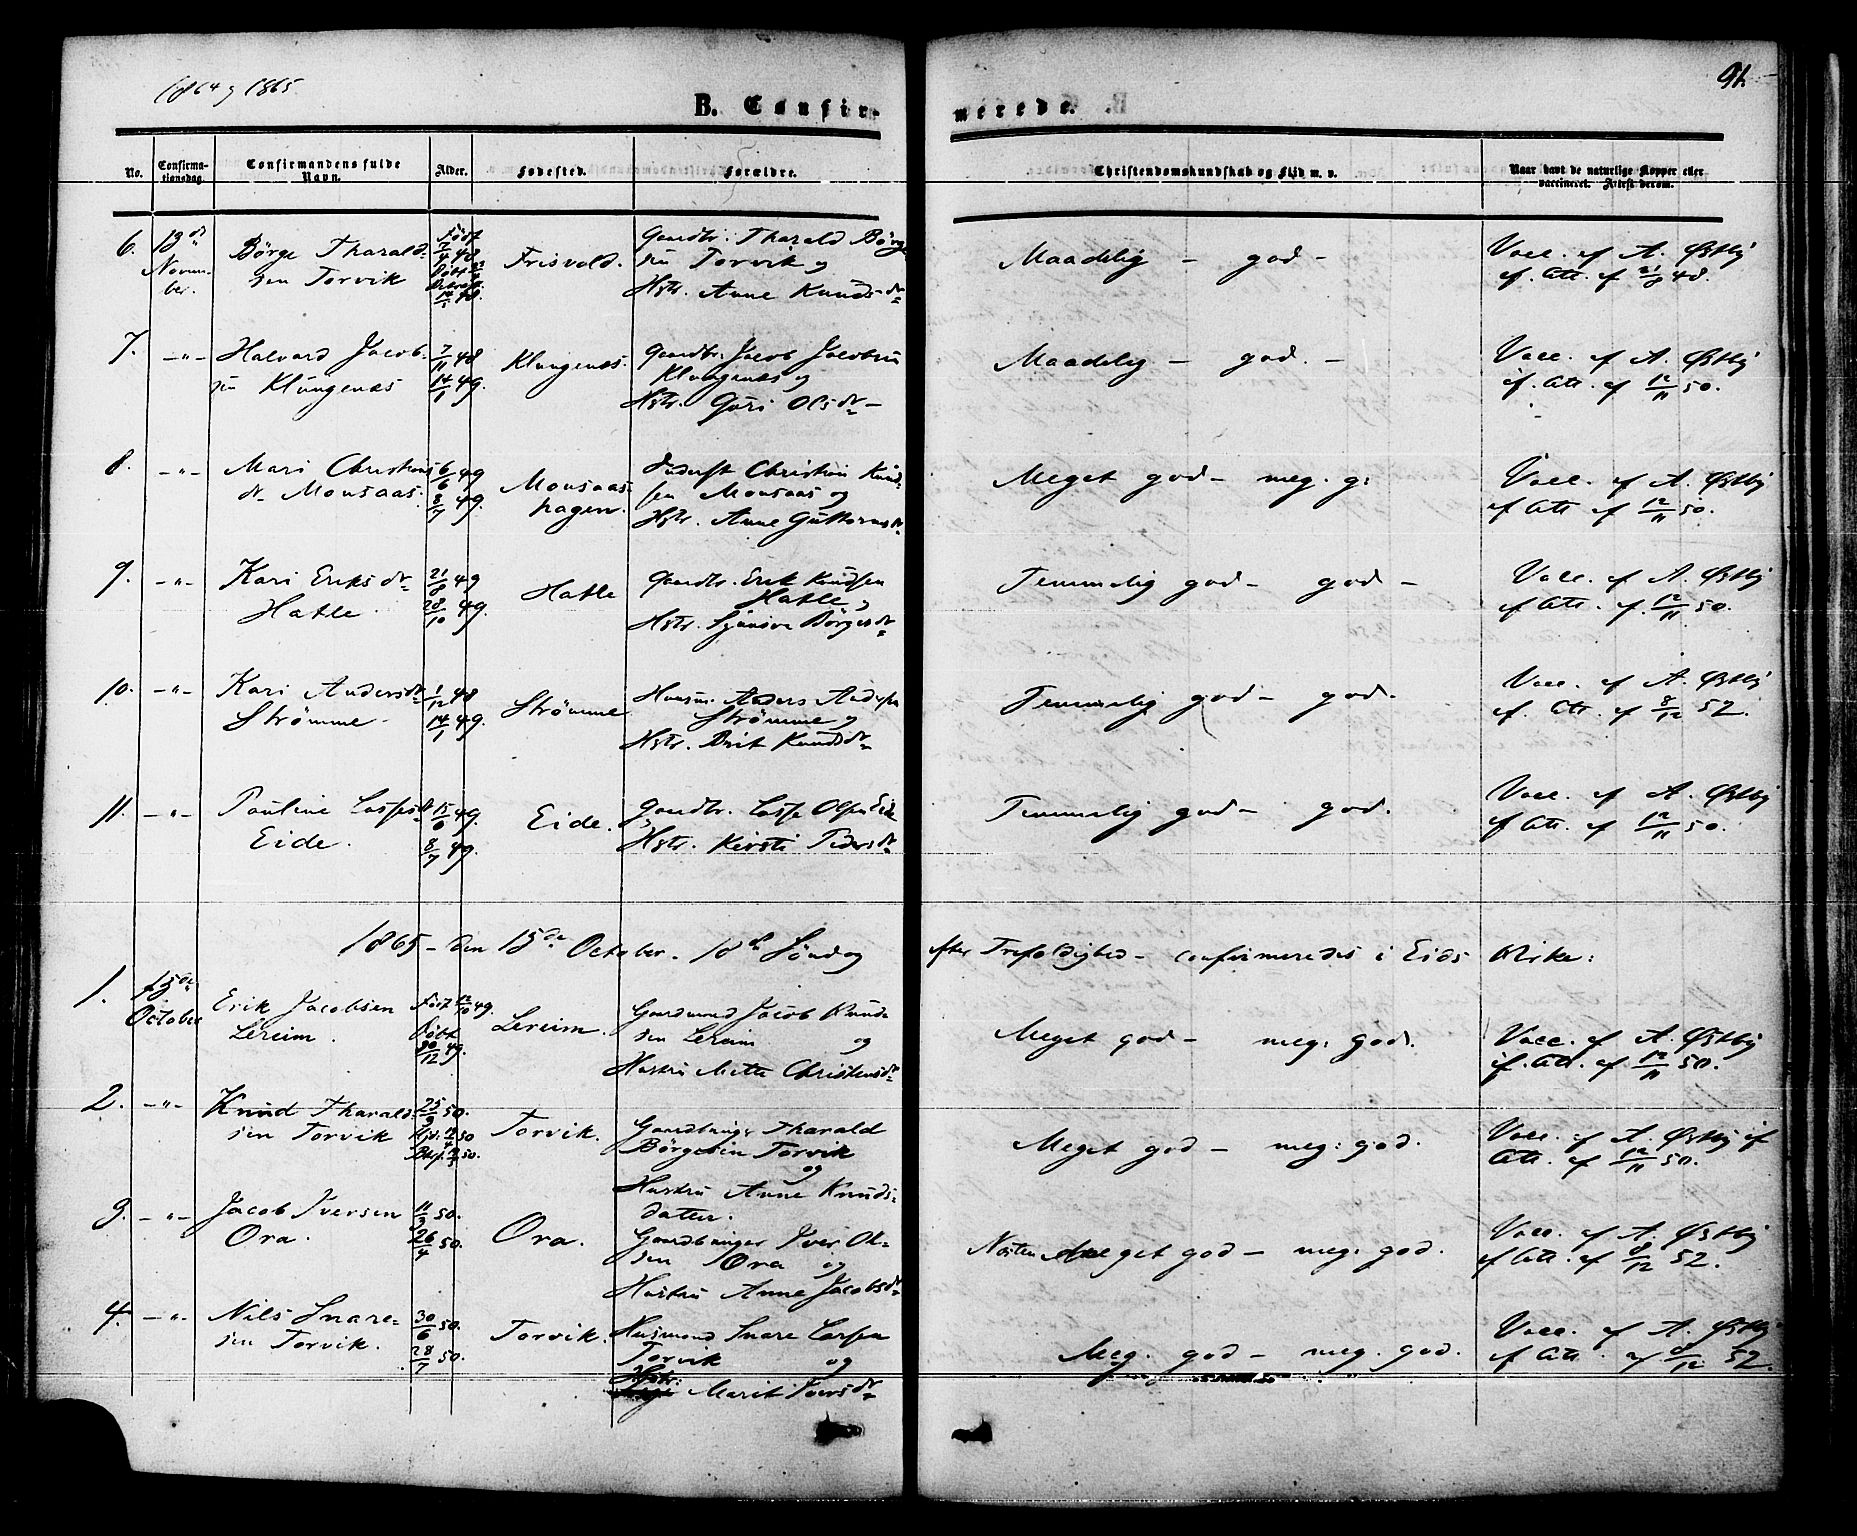 1864 og 1865
91.
B. Confir-
merede.
No.
Confirma-
tionsdag.
Confirmandens fulde
Navn.
Alder.
Fødested.
Forældre.
Christendomskundskab og Flid m. v.
Naar havt de naturlige Kopper eller
vaccineret. Attest derom.
6. 13de Novem-
ber.
Børge Tharald-
sen Torvik
Født
7/4 48
Døbt
Frisvold.
Gaardbr. Tharald Børge
sen Torvik og
Hstr. Anne Knudsdr
Maadelig - god -
Vacc. af A. Østby
if. Att. af 21/8 48.
7. -"-
Halvard Jacob-
sen Klungenæs
7/11 48
14/1 49.
Klungenæs.
Gaardbr. Jacob Jacobsen
Klungenæs og
Hstr. Guri Olsdr -
Maadelig - god. -
Vacc. af A. Østby
if. Att. af 12/11 50.
8. -"-
Mari Christens
dr Monsaas.
6/6 49
8/7 49.
Monsaas-
hagen.
Inderst Christen Knud-
sen Monsaas og
Hstr. Anne Guttormsdr
Meget god - meg. g:
Vacc. af A. Østby
if Att af 12/11 50.
9. -"-
Kari Eriksdr
Hatle.
21/8 49
28/10 49.
Hatle
Gaardbr. Erik Knudsen
Hatle og
Hstr. Synnøve Børgesdr
Temmelig god - god -
Vacc. af A. Østby
if Att. af 12/11 50.
10. -"-
Kari Andersdr
Strømme.
1/12 48
14/1 49.
Strømme
Huusm. Anders Andersen
Strømme og
Hstr. Brit Knudsdr
Temmelig god - god.
Vacc. af A. Østby
if. Att. af 8/12 52.
11. -"-
Pauline Lassesdr
Eide.
15/6 49.
8/7 49.
Eide.
Gaardbr. Lasse Olsen Eide
Hstr. Kirsti Pedersdr
Temmelig god - god.
Vacc. af A. Østby
if Att. af 12/11 50.
1865 - den 15de October. 18de Søndag
efter Trefoldighed - confirmeredes i Eids Kirke:
1. 15de
October
Erik Jacobsen
Lereim.
Født 12/10 49.
Døbt
30/12 49.
Lereim.
Gaardmand Jacob Knud-
sen Lereim og
Hustru Mette Christensdr
Meget god - meg: god.
Vacc. af A. Østby
if. Att. af 12/11 50.
2. -"-
Knud Tharald-
sen Torvik
Torvik.
Gaardbruger Tharald
Børgesen Torvik
og
Hustru Anne Knuds-
datter.
Meget god - meg: god.
Vacc. af A. Østby if
Att. af 12/11 50.
3. -"-
Jacob Iversen
Ora.
11/3 50.
26/4 50.
Ora.
Gaardbruger Iver Ol-
sen Ora og
Hustru Anne Jacobsdr
Næsten meget god - meg: god.
Vacc. af A. Østby
if Att. af 8/12 52.
4. -"-
Nils Snare-
sen Torvik.
30/6 50.
28/7 50.
Torvik.
Husmand Snare Larsen
Torvik og
Hstr. Marit Iversdr
Meg. god - meg. god.
Vacc. af A. Østby
if Att. af 8/12 52.